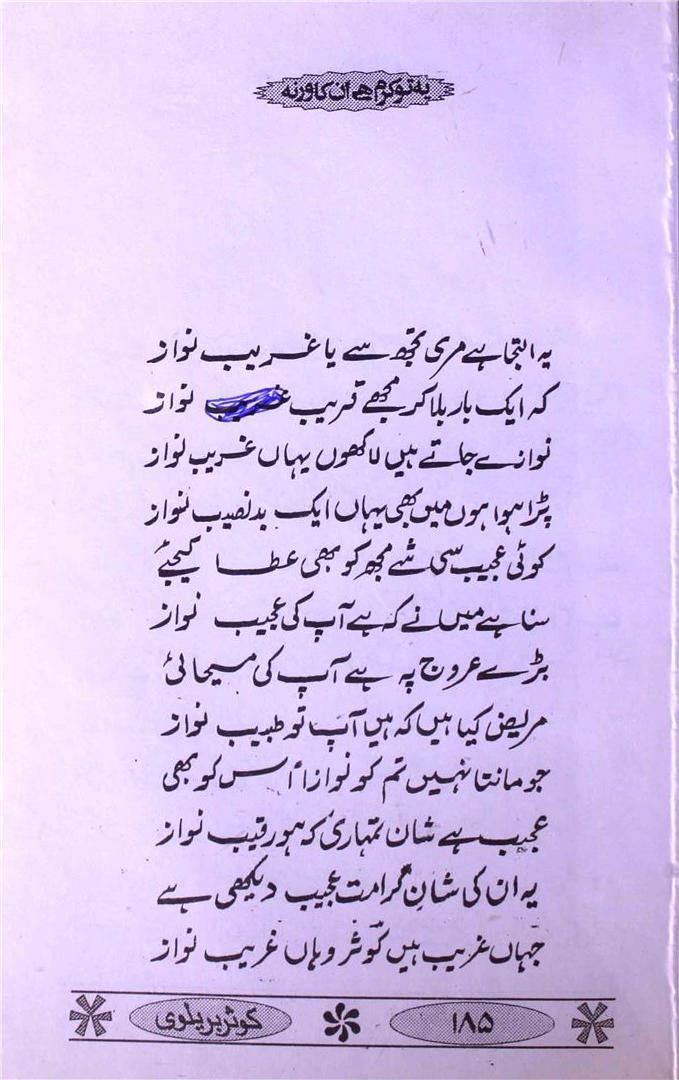 یہ تو کرم ہے ان کا ورنہ
یہ التجا ہے مری تجھ سے یا غریب نواز
کہ ایک بار بلا کر مجھے قریب نواز
نوازے جاتے ہیں لاکھوں یہاں غریب نواز
پڑا ہوا ہوں میں بھی یہاں ایک بدنصیب نواز
کوئی عجیب سی شے مجھ کو بھی عطا کیجئے
سنا ہے میں نے کہ ہے آپ کی عجیب نواز
بڑے عروج پہ ہے آپ کی مسیحائی
مریض کیا ہیں کہ ہیں آپ تو طبیب نواز
جو مانتا نہیں تم کو نوازا اس کو بھی
عجیب ہے شان تمہاری کہ ہو رقیب نواز
یہ ان کی شانِ کرامت عجیب دیکھی ہے
جہاں غریب ہیں کوثر وہاں غریب نواز
کوثر بریلوی
۱۸۵